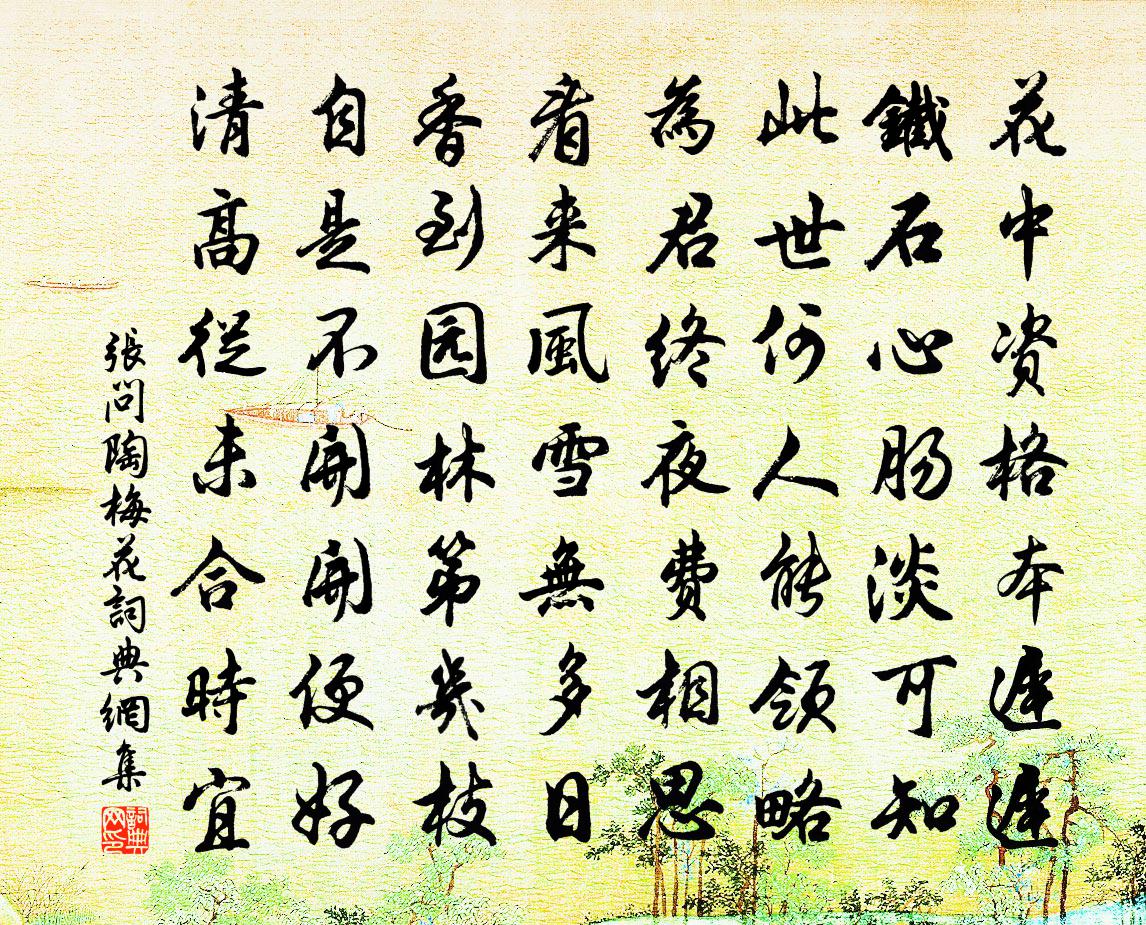 花中資格本遲遲
鐵石心腸淡可知
此世何人能領略
為君終夜費相思
看来風雪無多日
香到园林第幾枝
自是不開開便好
清高從未合時宜
張問陶梅花詞典網集
詞典网印